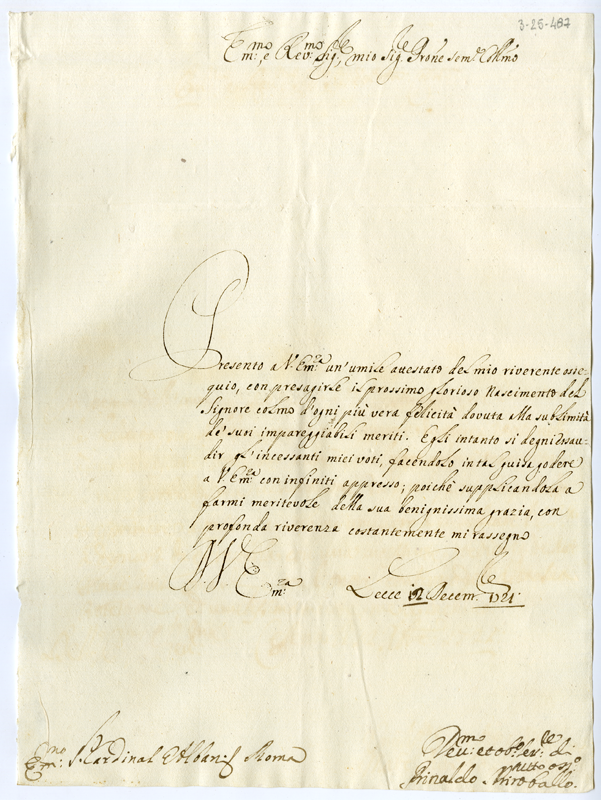 3-25-487
Em̃o: e Rev:mo Sig:re mio Sig:re Prõne sem:e Collmo
Presento a V. Em:za un'umile attestato del mio riverente osse-
quio, con presagirle il prossimo glorioso Nascimento del
Signore colmo d'ogni più vera felicità dovuta alla sublimità
de' suoi impareggiabili meriti. Egli intanto si degni d'esau-
dir gl'incessanti miei voti, facendolo in tal guisa godere
a V. Em:za con infiniti appresso; poichè supplicandola a
farmi meritevole della sua benignissima grazia, con
profonda riverenza costantemente mi rassegno
V. Em:za
Lecce 12 Decem:re 1721
Em:mo S. Cardinal Albani Roma
Dev:mo et obb: ser:re di
Rinaldo